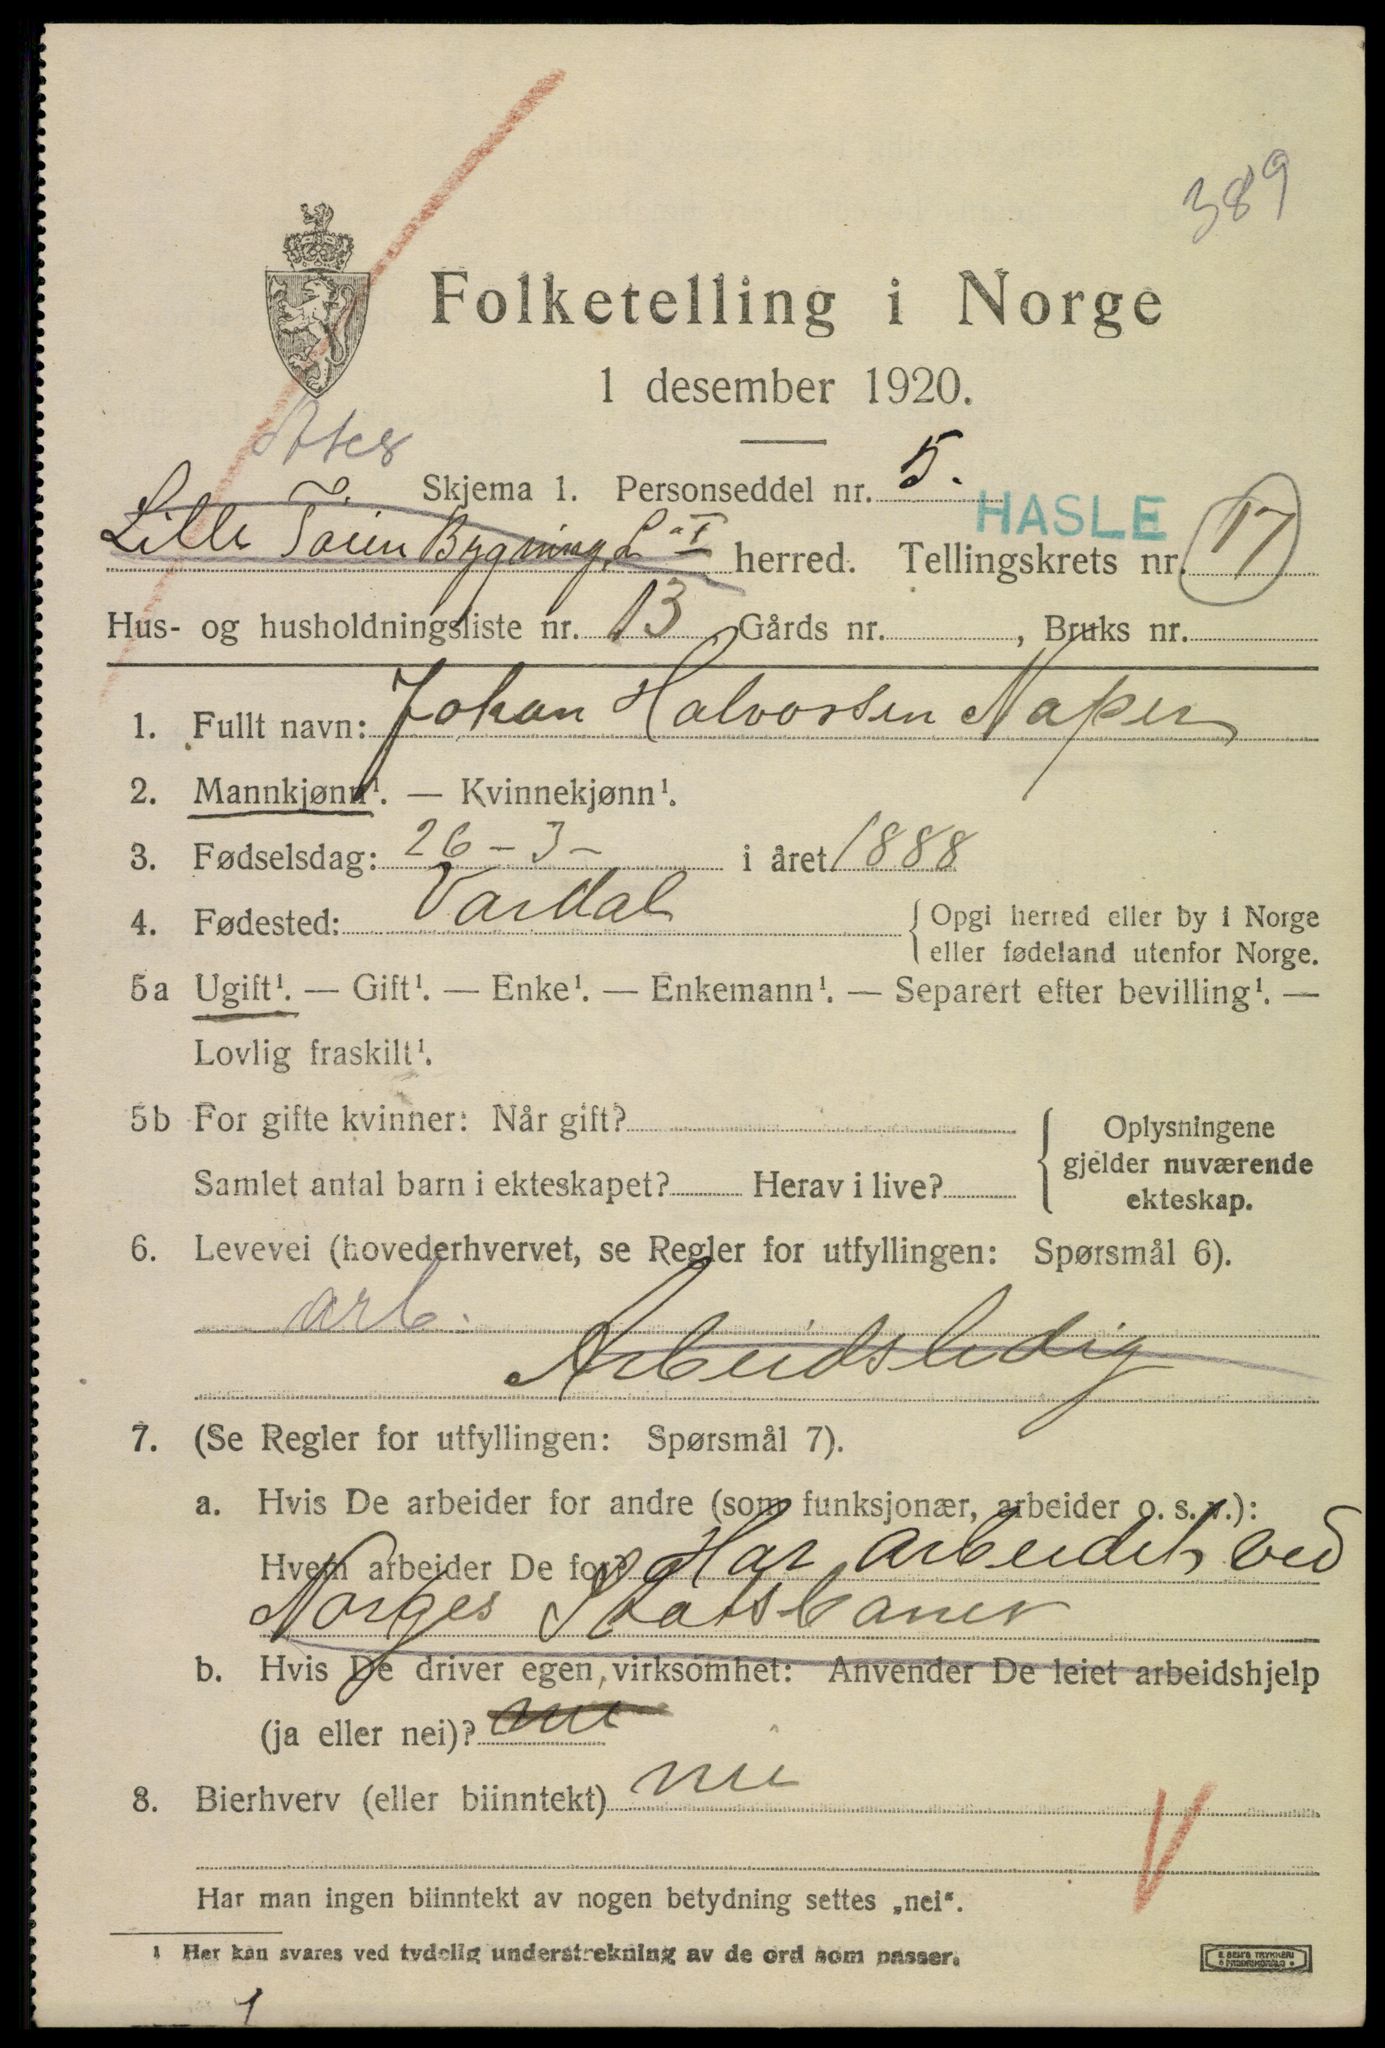 389
Folketelling i Norge
1 desember 1920.
Aker
Skjema 1. Personseddel nr. 5.
HASLE
Lille Töien Bygning L. I herred. Tellingskrets nr. 17
Hus- og husholdningsliste nr. 13 Gårds nr. , Bruks nr.
1. Fullt navn: Johan Halvorsen Naper
2. Mannkjønn¹. — Kvinnekjønn¹.
3. Fødselsdag: 26-3- i året 1888
4. Fødested: Vardal { Opgi herred eller by i Norge
eller fødeland utenfor Norge.
5a Ugift¹. — Gift¹. — Enke¹. — Enkemann¹. — Separert efter bevilling¹. —
Lovlig fraskilt¹.
5b For gifte kvinner: Når gift? { Oplysningene
gjelder nuværende
Samlet antal barn i ekteskapet? Herav i live?
ekteskap.
6. Levevei (hovederhvervet, se Regler for utfyllingen: Spørsmål 6).
arb.
Arbeidsledig
7. (Se Regler for utfyllingen: Spørsmål 7).
a. Hvis De arbeider for andre (som funksjonær, arbeider o. s. v.):
Hvem arbeider De for? Har arbeidet ved
Norges Statsbaner
b. Hvis De driver egen virksomhet: Anvender De leiet arbeidshjelp
(ja eller nei)? nei
8. Bierhverv (eller biinntekt) nei
V
Har man ingen biinntekt av nogen betydning settes „nei“.
1 Her kan svares ved tydelig understrekning av de ord som passer.
1